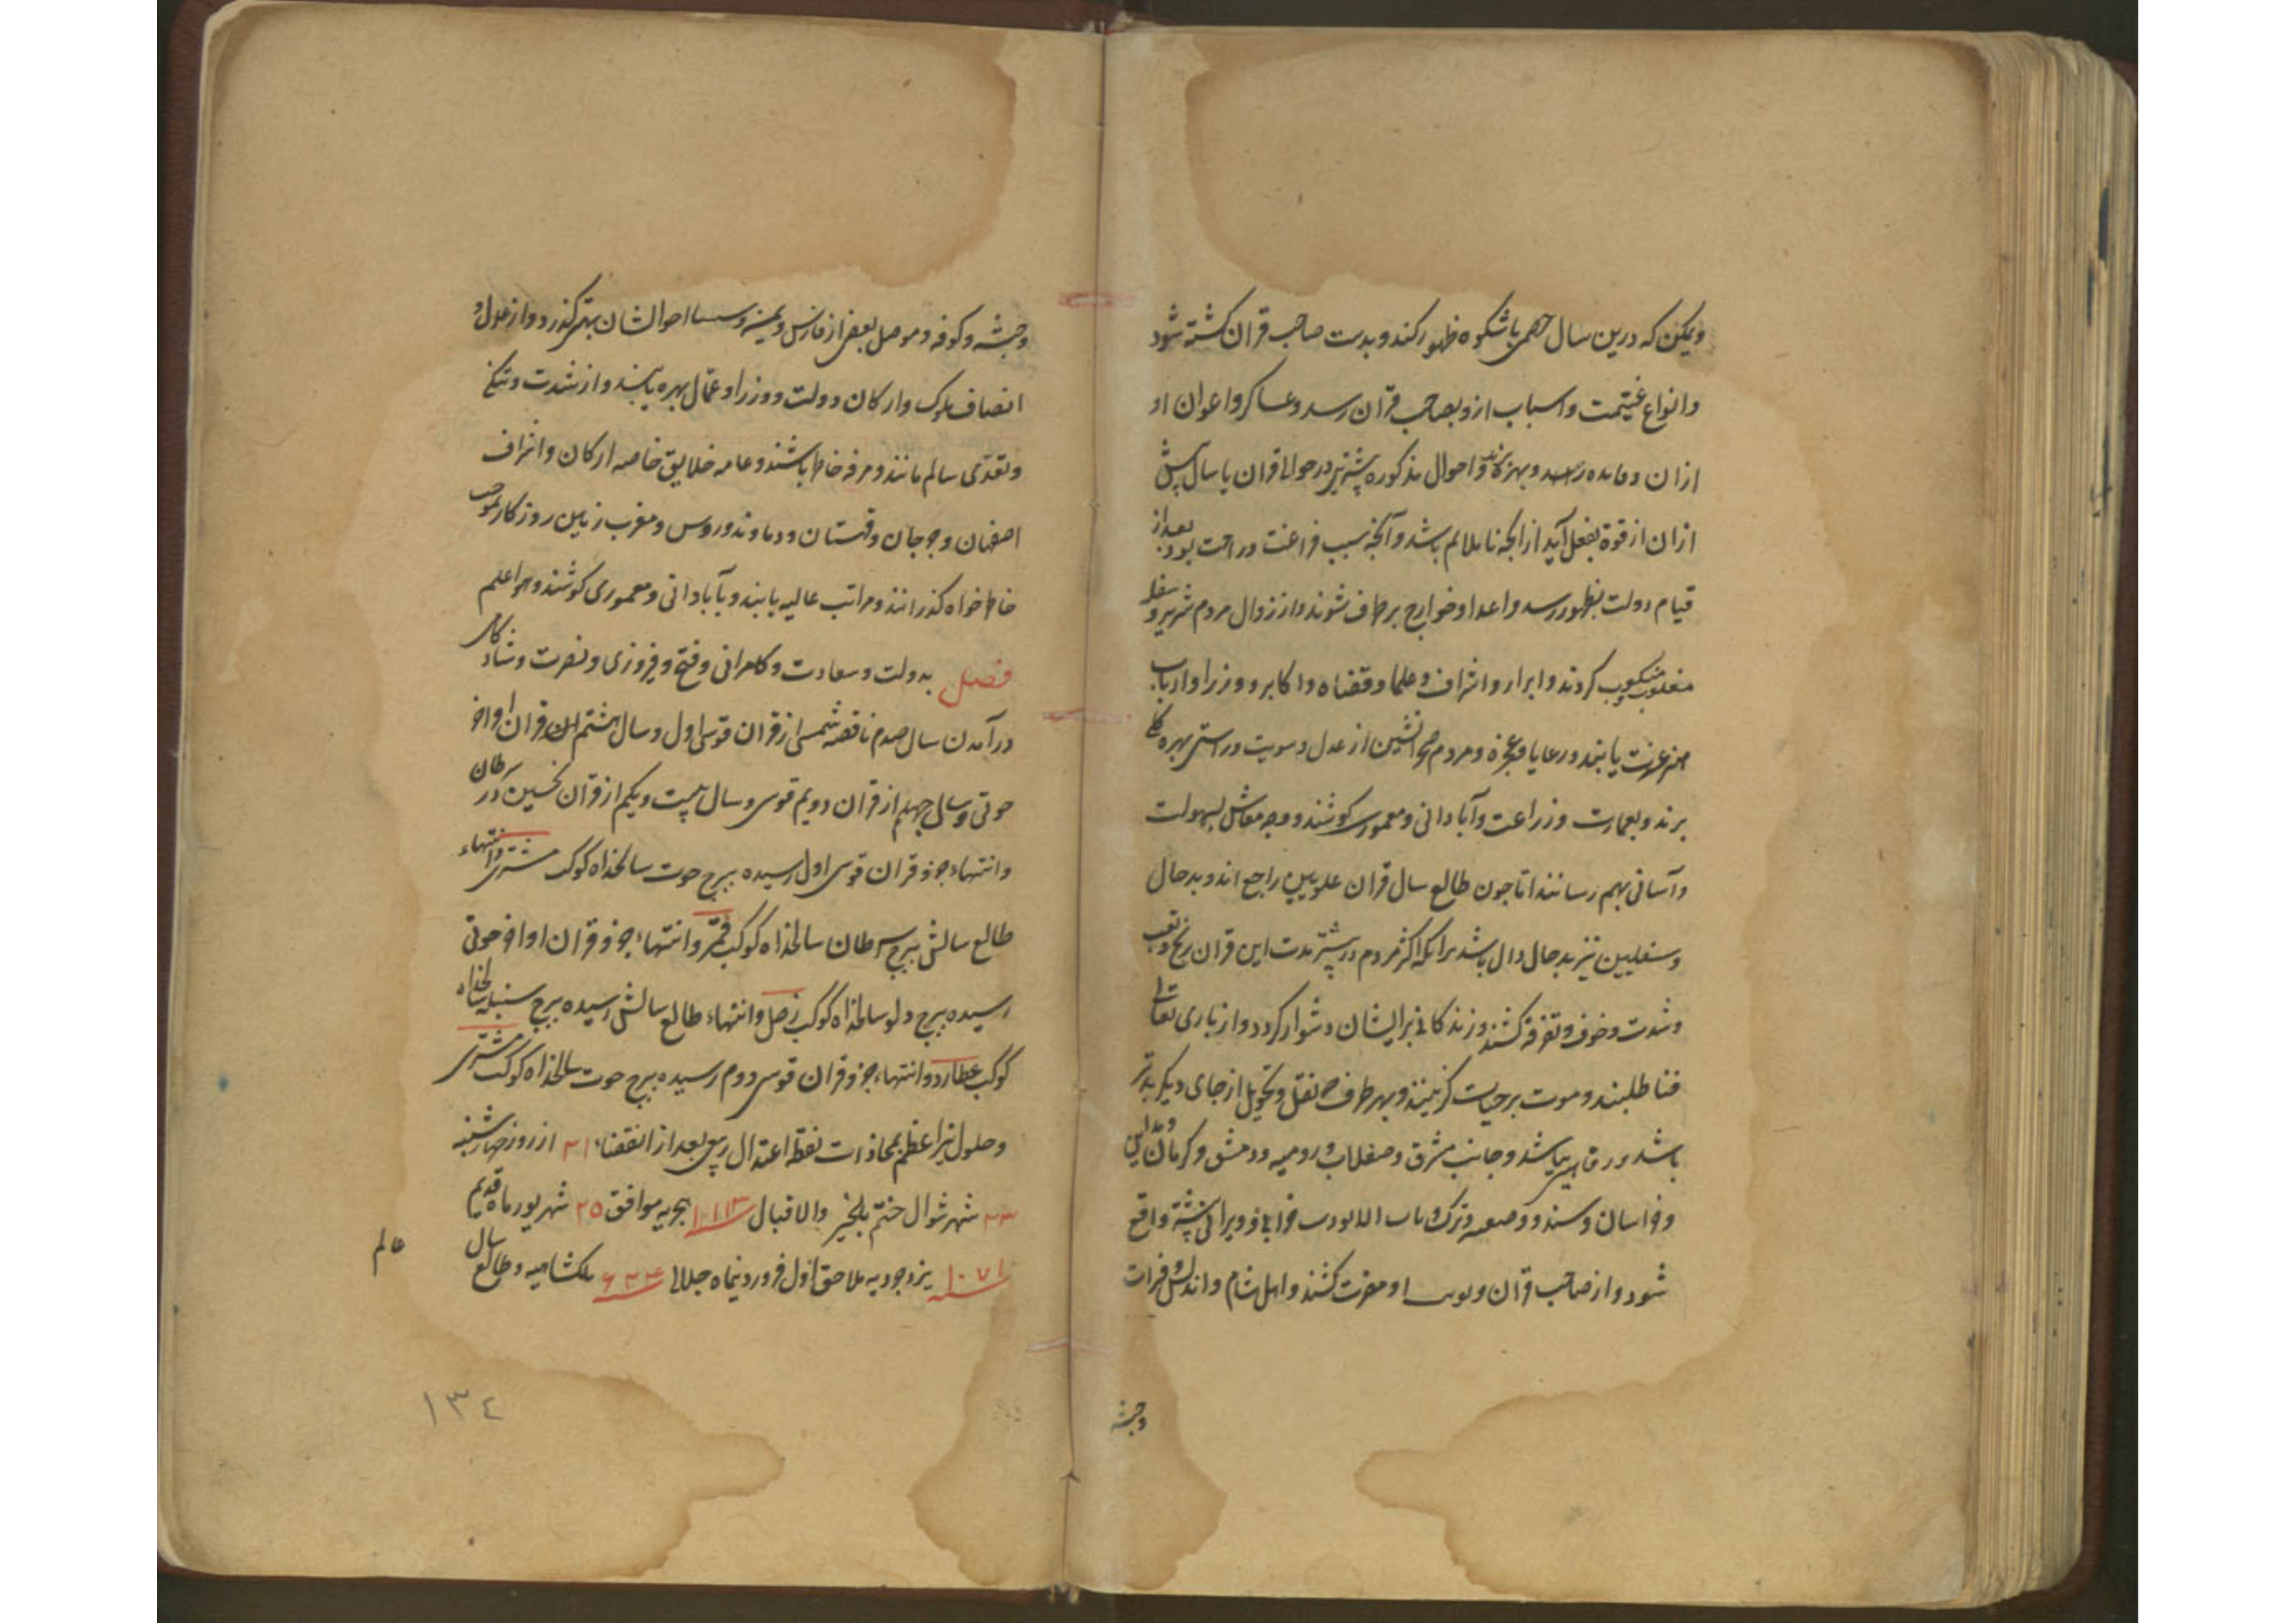 ویمکن که درین سال خصمی باشکوه ظهور کند و بدست صاحب قران کشته شود
و انواع غنیمت و اسباب ازو بصاحب قران رسد و عساکر و اعوان او
ازان و فایده رسد و بهره برند و احوال مذکوره پیشتر در حوالی قران یا سال پیش
ازان از قوة بفعل آید از انجه ناملایم باشد و آنجه بسبب فراغت و راحت بود بعد از
قیام دولت بظهور رسد و اعدا و خوارج بر طرف شوند و ارذال مردم شریر و سفله
مغلوب و منکوب کردند و ابرار و اشراف و علما و قضاه و اکابر و وزرا و ارباب
عزت یابند و رعایا و عجزه و مردم صحرانشین از عدل و سویت و راستی بهره
برند و بعمارت و زراعت و آبادانی و معموری کوشند و وجه معاش بسهولت
و آسانی بهم رسانند اما جون طالع سال قران علویین راجع اند و بدحال
و سفلیین نیز بدحال دال باشد برانکه اکثر مردم در پیشتر مدت این قران رنج و تعب
و شدت و خوف و تفرقه کشند و زندکانی بر ایشان دشوار کردد و از باری تعالی
فنا طلبند و موت بر حیات کزینند و بهر طرف نقل و تحویل از جای دیکر بدتر
باشد و جانب مشرق و صقلاب و رومیه و دمشق و کرمان و مداین
و خراسان و سند و ترک و باب خرابی و ویرانی پیشتر واقع
شود و از صاحب قران او مضرت کشند و اهل شام و اندلس و فرات
وحبشه
وحبشه و کوفه و موصل بعضی از فارس و احوالشان بهتر کذرد و از عدل و
انصاف ملوک و ارکان دولت و وزرا و عمّال بهره یابند و از شدت و تنکی
و تعدّی سالم مانند و مرفه خاطر باشند و عامه خلایق خاصه ارکان و اشراف
اصفهان و قهستان و دماوند و روس و مغرب زمین روزکار بموجب
خاطرخواه کذرانند و مراتب عالیه یابند و بآبادانی و معموری کوشند و هو اعلم
فصل بدولت و سعادت و کامرانی و فتح و فیروزی و نصرت و شادکامی
درآمدن سال صدم ناقصه شمسی از قران قوسی اول و سال هشتم از قران اواخر
حوتی و سال چهلم از قران دویم قوسی و سال بیست و یکم از قران نحسین در سرطان
و انتهاء جزو قران قوسی اول رسیده ببرج حوت سالخداه کوکب مشتری و انتهاء
طالع سالش ببرج سرطان سالخداه کوکب قمر و انتهاء جزو قران اواخر حوتی
رسیده ببرج دلو سالخداه کوکب زحل و انتهاء طالع سالش رسیده ببرج سنبله سالخداه
کوکب عطارد و انتهاء جزو قران قوسی دوم رسیده ببرج حوت سالخداه کوکب مشتری
و حلول نیر اعظم بمحاذات نقطهٔ اعتدال ربیعی بعد از انقضاء ۲۱ از روز چهارشنبه
شهر شوال ختم بالخیر والاقبال ۱۱۱۳ هجریه موافق ۲۵ شهریور ماه قدیم
۱۰۷۱ یزدجردیه ملاحق اول فروردینماه جلالی ۶۲۴ ملکشاهیه و طالع سال
عالم
١٣٤